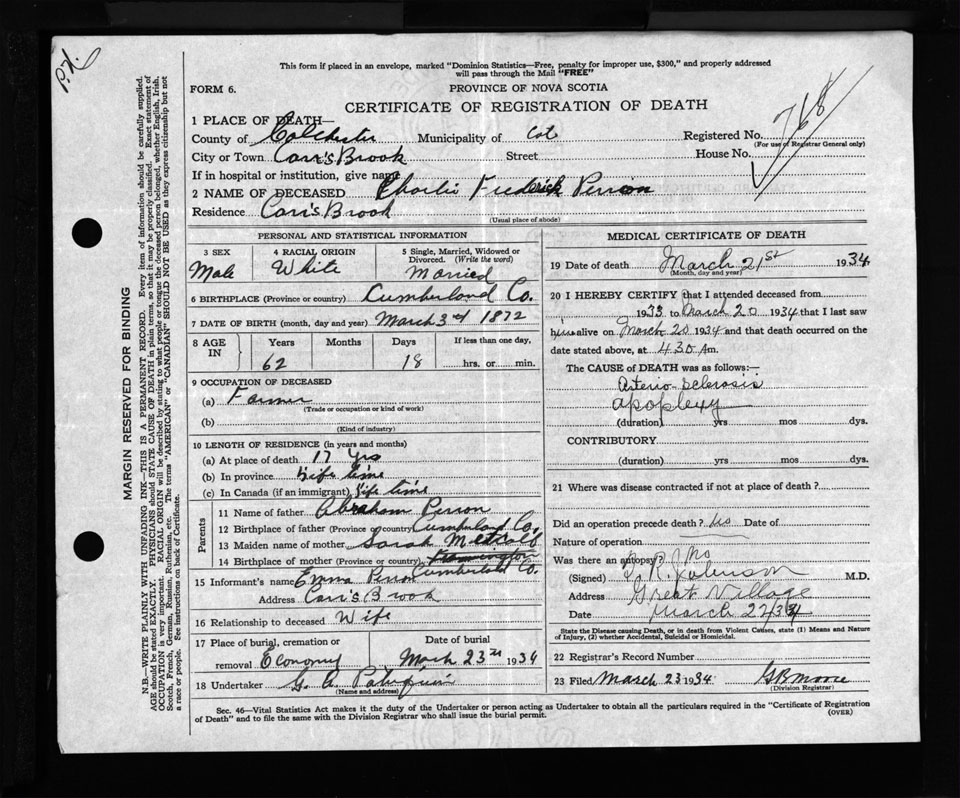 P.K.
This form if placed in an envelope, marked "Dominion Statistics—Free, penalty for improper use, $300," and properly addressed
will pass through the Mail "FREE"
FORM 6.
PROVINCE OF NOVA SCOTIA
CERTIFICATE OF REGISTRATION OF DEATH
1 PLACE OF DEATH—
County of Colchester Municipality of Col Registered No. 768
(For use of Registrar General only)
City or Town Carr's Brook Street House No.
If in hospital or institution, give name
2 NAME OF DECEASED Charlie Frederick Perrion
Residence Carr's Brook
(Usual place of abode)
PERSONAL AND STATISTICAL INFORMATION
3 SEX 4 RACIAL ORIGIN 5 Single, Married, Widowed or
Divorced. (Write the word)
Male White Married
6 BIRTHPLACE (Province or country) Cumberland Co.
7 DATE OF BIRTH (month, day and year) March 3rd 1872
8 AGE IN Years Months Days If less than one day,
62 18 hrs. or min.
9 OCCUPATION OF DECEASED
(a) Farmer
(Trade or occupation or kind of work)
(b)
(Kind of industry)
10 LENGTH OF RESIDENCE (in years and months)
(a) At place of death 17 Yrs
(b) In province Life time
(c) In Canada (if an immigrant) Life time
Parents
11 Name of father Abraham Perrion
12 Birthplace of father (Province or country) Cumberland Co.
13 Maiden name of mother Sarah Metcalf
14 Birthplace of mother (Province or country)
Cumberland Co.
15 Informant's name Emma Perrion
Address Carr's Brook
16 Relationship to deceased Wife
17 Place of burial, cremation or Date of burial
removal Economy March 23rd 1934
18 Undertaker G. A.
(Name and address)
MEDICAL CERTIFICATE OF DEATH
19 Date of death March 21st 1934
(Month, day and year)
20 I HEREBY CERTIFY that I attended deceased from
1933 to March 20 1934 that I last saw
him alive on March 20 1934 and that death occurred on the
date stated above, at 430 Am.
The CAUSE OF DEATH was as follows:—
Arterio-Sclerosis
apoplexy
(duration) yrs mos dys.
CONTRIBUTORY
(duration) yrs mos dys.
21 Where was disease contracted if not at place of death?
Did an operation precede death? No Date of
Nature of operation
Was there an autopsy? No
(Signed) Johnson M.D.
Address Great Village
Date March 22/34
State the Disease causing Death, or in death from Violent Causes, state (1) Means and Nature
of Injury, (2) whether Accidental, Suicidal or Homicidal.
22 Registrar's Record Number
23 Filed March 23 1934 G B Moore
(Division Registrar)
Sec. 46—Vital Statistics Act makes it the duty of the Undertaker or person acting as Undertaker to obtain all the particulars required in the "Certificate of Registration
of Death" and to file the same with the Division Registrar who shall issue the burial permit.
(OVER)
MARGIN RESERVED FOR BINDING
N.B.—WRITE PLAINLY WITH UNFADING INK—THIS IS A PERMANENT RECORD. Every item of information should be carefully supplied.
AGE should be stated EXACTLY. PHYSICIANS should STATE CAUSE OF DEATH in plain terms, so that it may be properly classified. Exact statement of
OCCUPATION is very important. RACIAL ORIGIN will be described by stating to what people or tongue the deceased person belonged, whether English, Irish,
Scotch, French, German, Russian, Ruthenian, etc. The terms "AMERICAN" or "CANADIAN" SHOULD NOT BE USED as they express citizenship but not
a race or people. See instructions on back of Certificate.